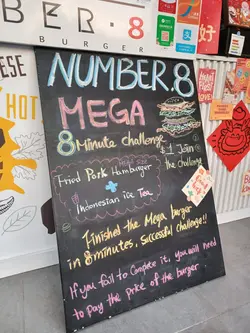 BER · 8
BURGER
NUMBER.8
MEGA
8 Minute challenge
Fried Pork Hamburger
+
Indonesian ice Tea
Join
the challenge
Finished the Mega burger
in 8 minutes, Successful challenge!!
If you fail to Complete it, you will need
to pay the price of the burger
ESE
HOT